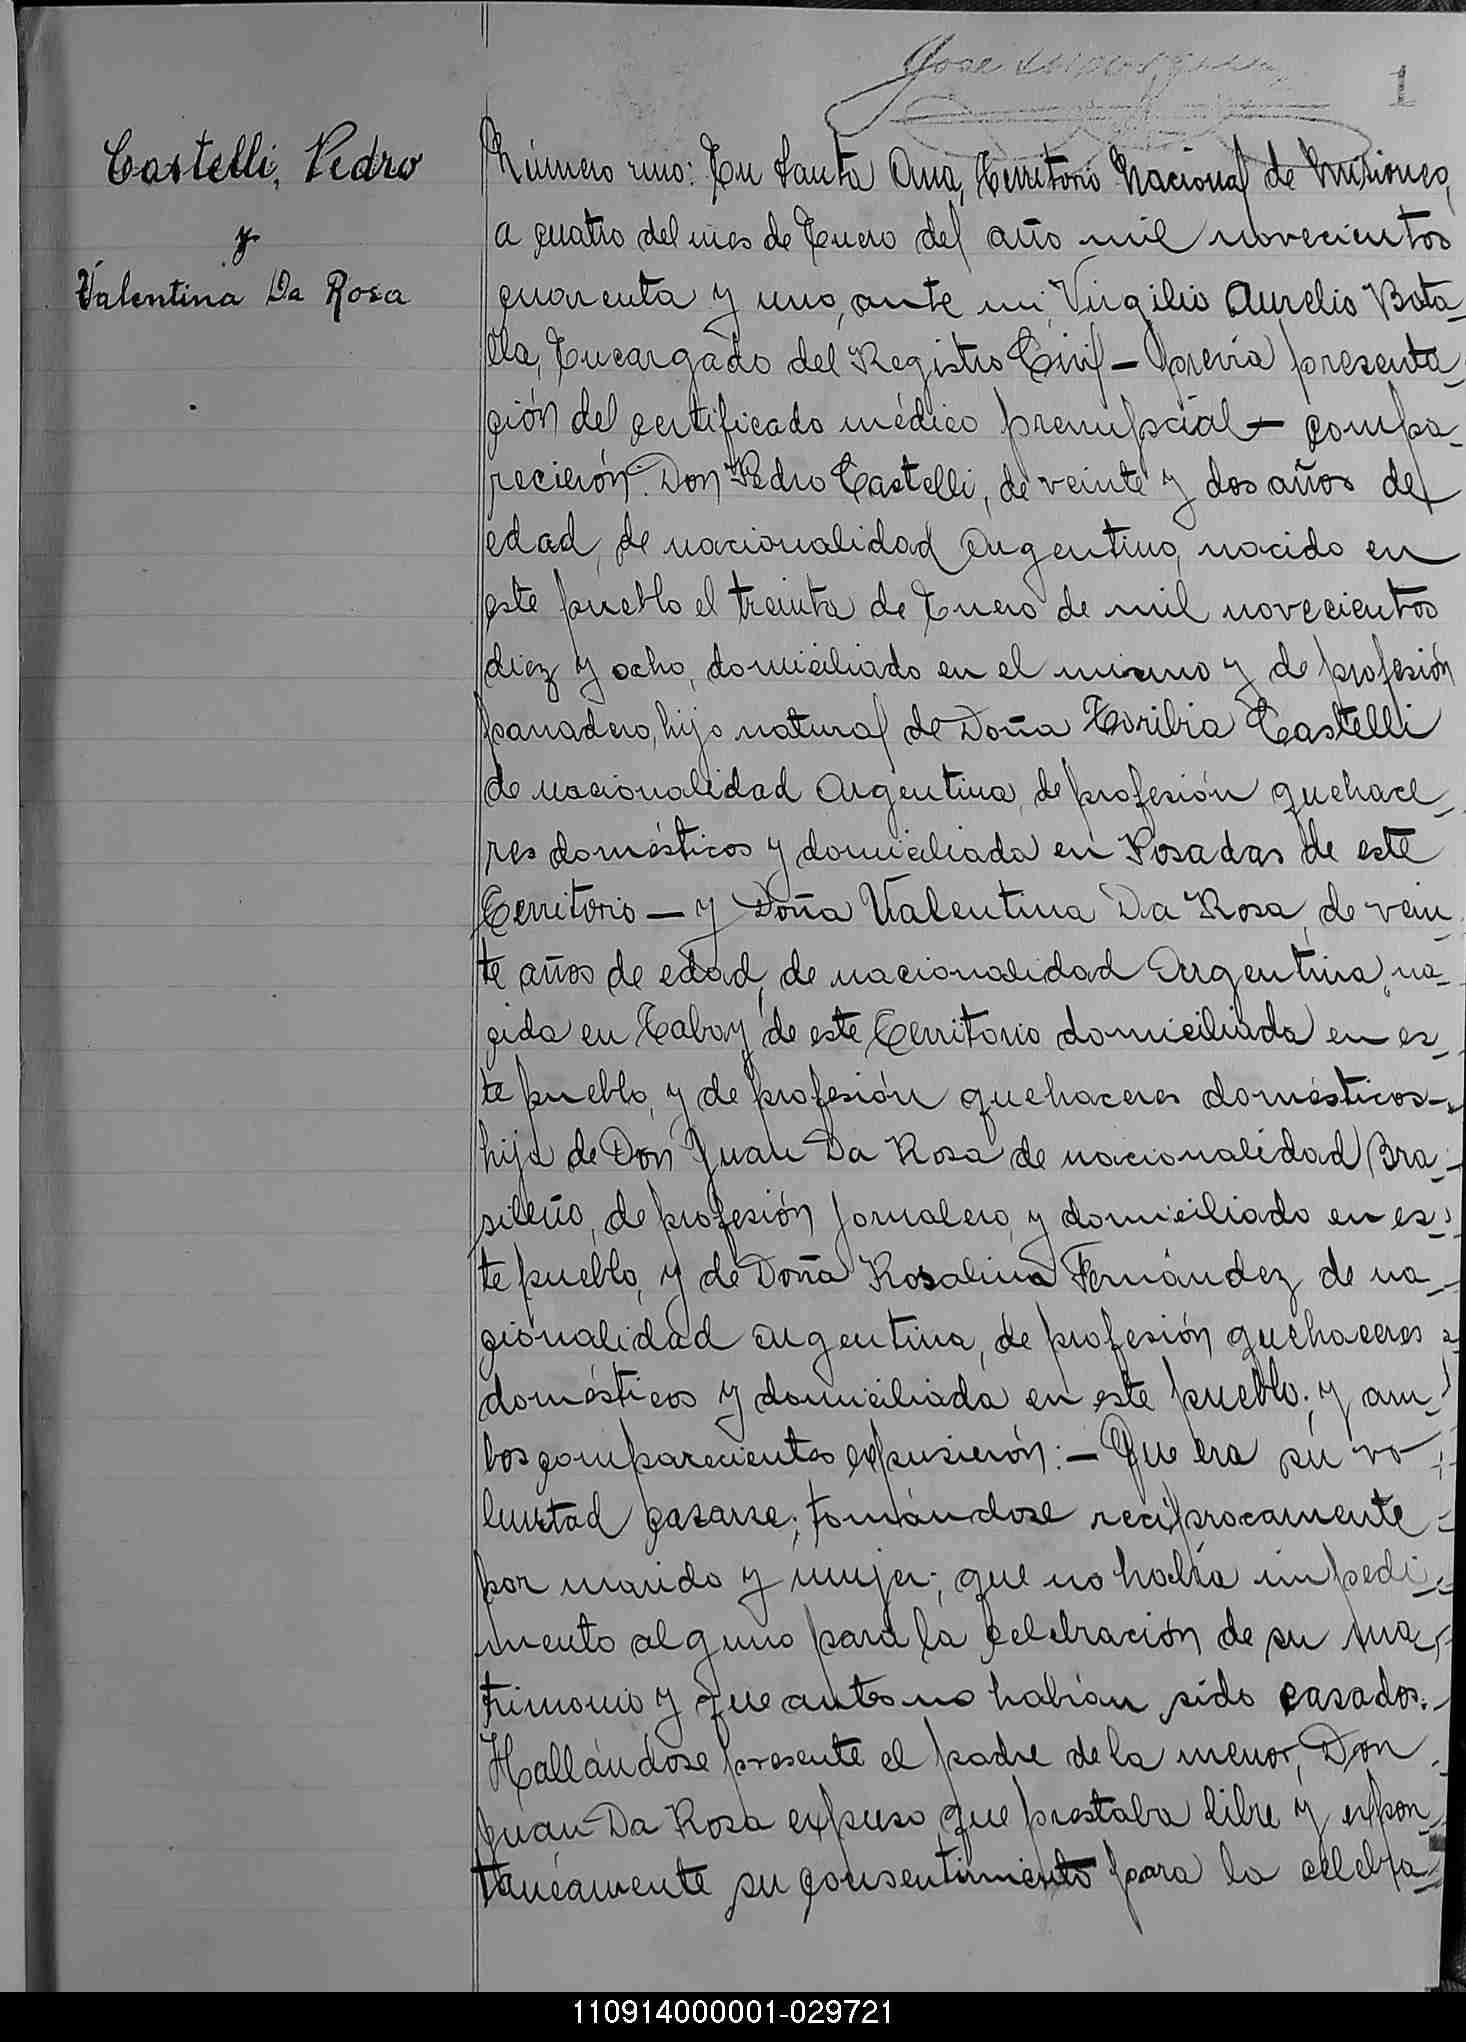 Jose
1
Castelli, Pedro
y
Valentina Da Rosa
Número uno: En Santa Ana, Territorio Nacional de Misiones,
a cuatro del mes de Enero del año mil novecientos
cuarenta y uno, ante mi, Virgilio Aurelio Bata-
lla, Encargado del Registro Civil — previa presenta-
ción del certificado médico prenupcial — compa-
recierón: Don Pedro Castelli, de veinte y dos años de
edad, de nacionalidad Argentino, nacido en
este pueblo el treinta de Enero de mil novecientos
diez y ocho, domiciliado en el mismo y de profesión
panadero, hijo natural de Doña Toribia Castelli
de nacionalidad Argentina, de profesión quehace-
res domésticos y domiciliada en Posadas de este
Territorio — y Doña Valentina Da Rosa, de vein-
te años de edad, de nacionalidad Argentina, na-
cida en Tabay de este Territorio domiciliada en es-
te pueblo, y de profesión quehaceres domésticos-
hija de Don Juan Da Rosa de nacionalidad Bra-
sileño, de profesión jornalero, y domiciliado en es-
te pueblo, y de Doña Rosalina Fernández de na-
cionalidad argentina, de profesión quehaceres
domésticos y domiciliada en este pueblo; y am-
bos comparecientes expusierón: — Que era su vo-
luntad casarse; tomándose reciprocamente
por marido y mujer; que no había impedi-
mento alguno para la celebración de su ma-
trimonio y que antes no habían sido casados.-
Hallándose presente el padre de la menor, Don
Juan Da Rosa expuso que prestaba libre y expon-
táneamente su consentimiento para la celebra-
110914000001-029721